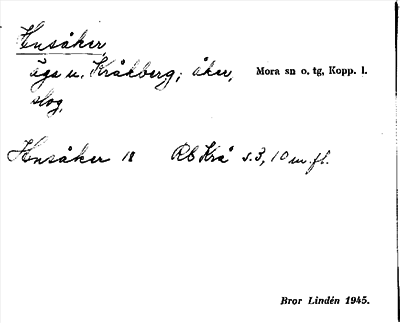 Husåker,
ägs u. Kråkberg; åker, Mora sn o. tg, Kopp. l.
slog.
Husåker 18 RS Krå s. 3, 10 m. fl.
Bror Lindén 1945.